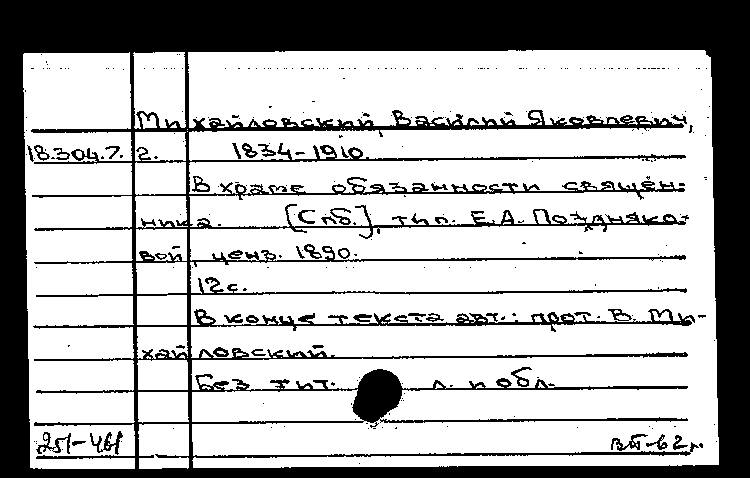 Михайловский, Василий Яковлевич,
18.304.7.2. 1834-1910.
В храме обязанности священ-
ника. [Спб.], тип. Е.А. Поздняко-
вой, ценз. 1890.
12 с.
В конце текста авт.: прот. В. Ми-
хайловский.
Без тит. л. и обл.
251-461